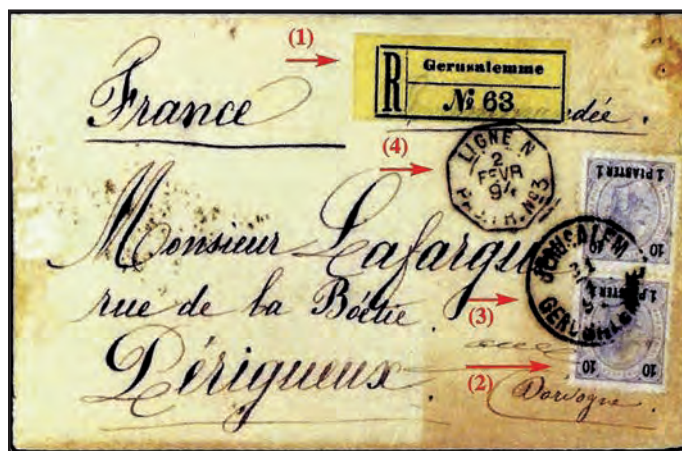 (1)
R
Gerusalemme
№ 63
France
ndée.
(4)
LIGNE N
2
FEVR
1 PIASTER 1
10
Monsieur Lafargue
JERUSALEM
rue de la Boëtie.
(3)
1 PIASTER 1
10 10
Périgueux
(2)
Dordogne